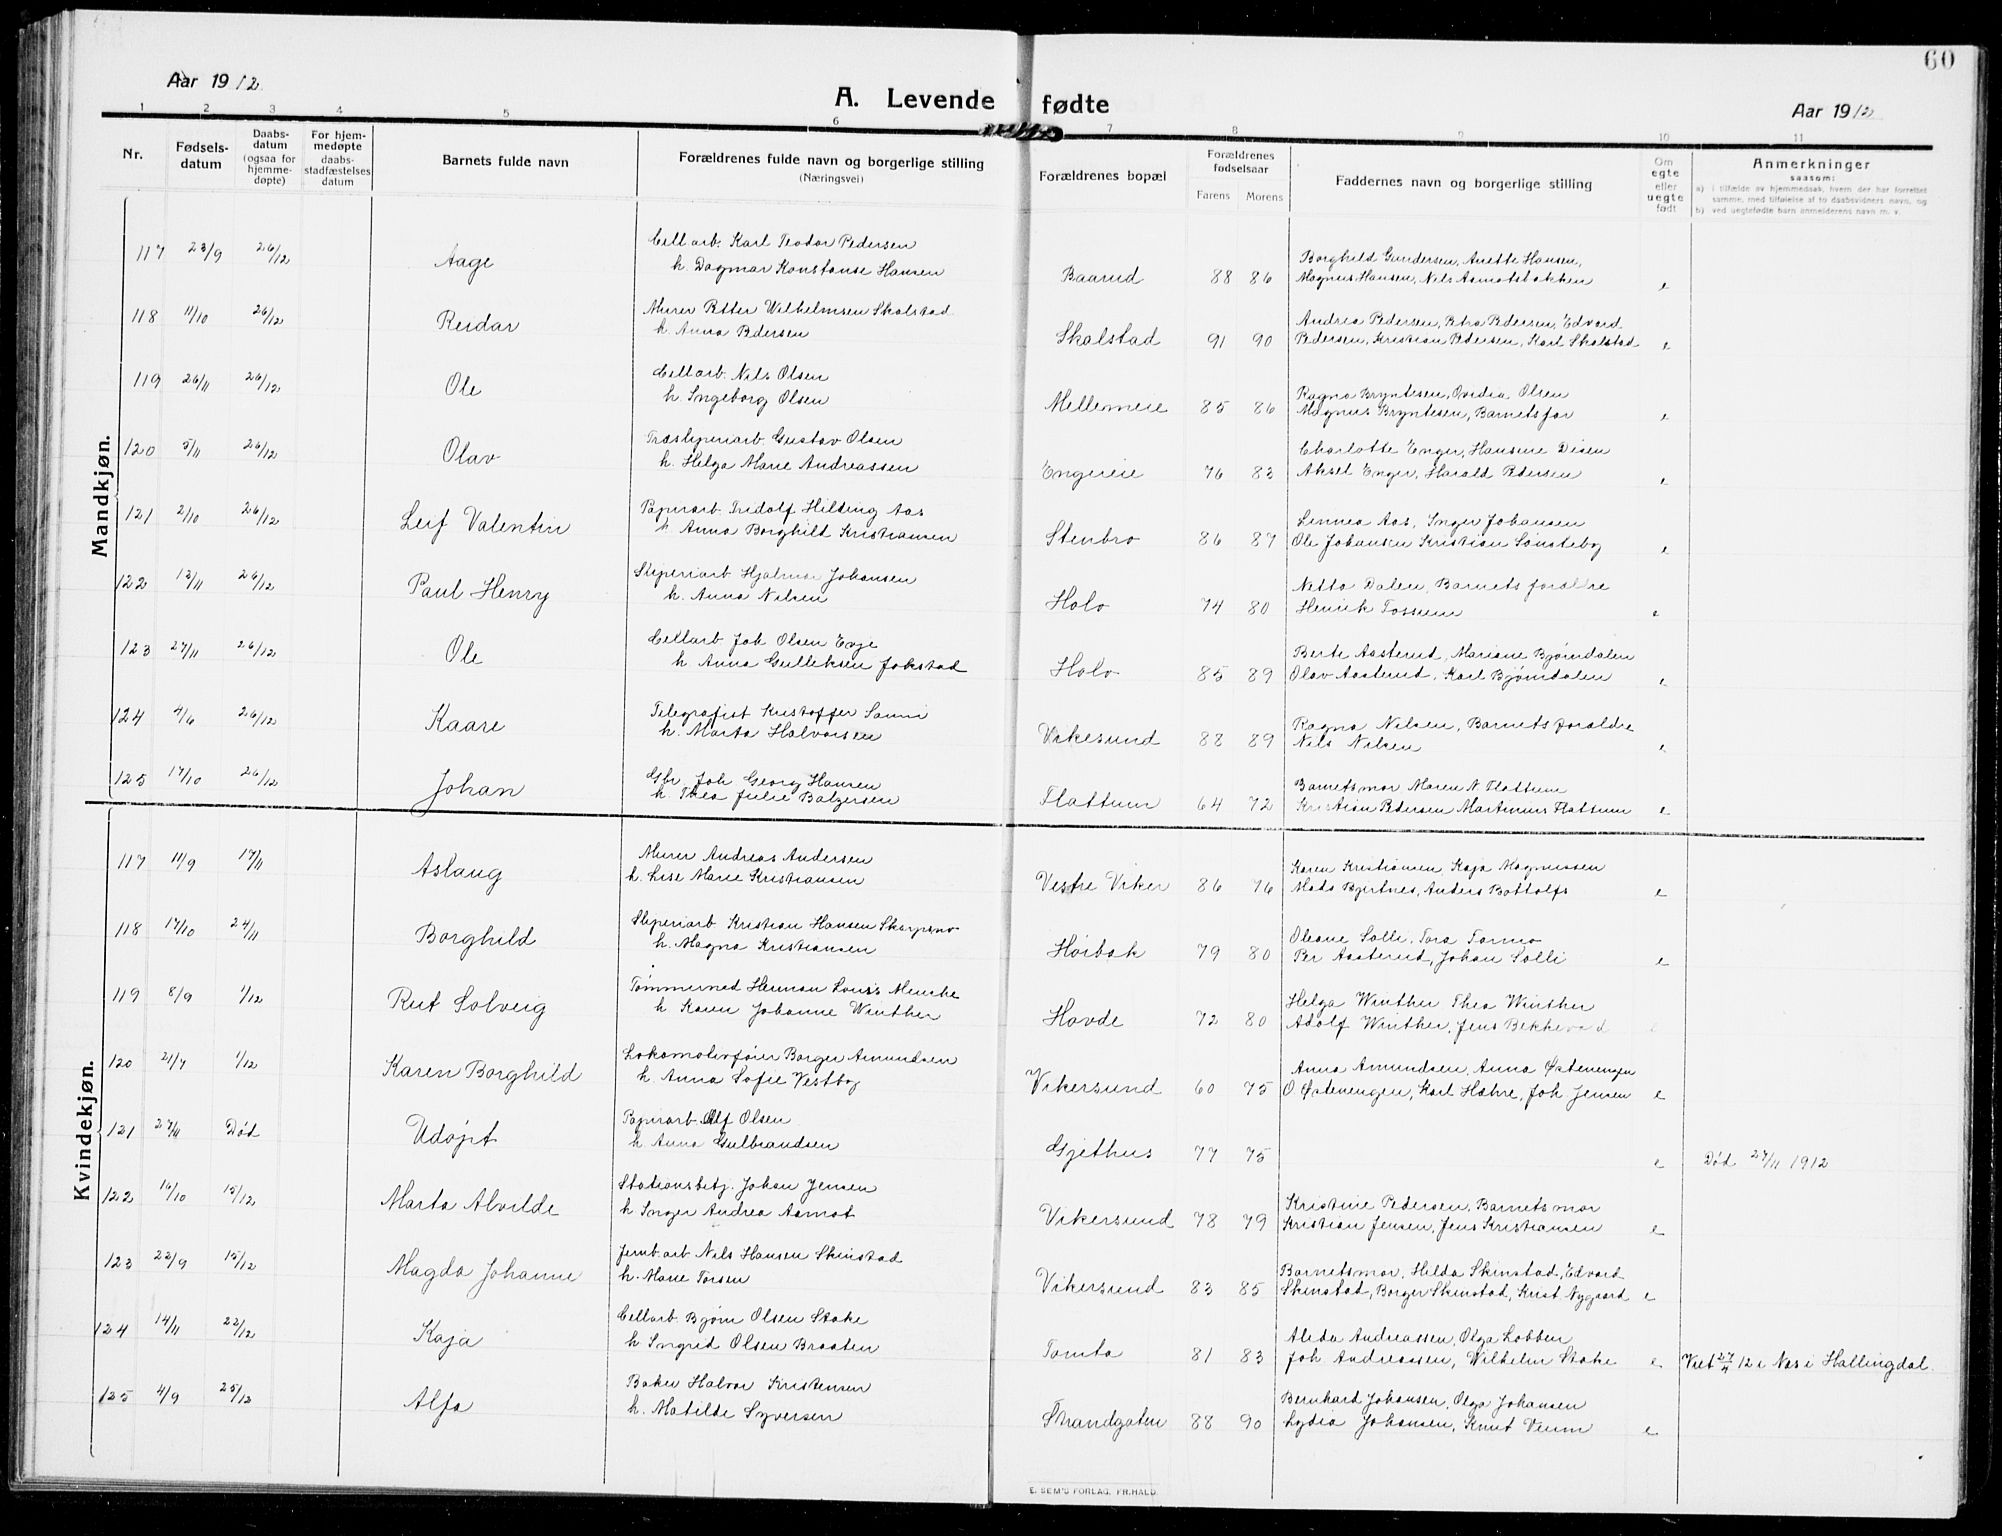 60
Aar 1912
A. Levende fødte
Aar 1912
1 2 3 4 5 6 7 8 9 10 11
Nr.
Fødsels-
datum
Daabs-
datum
(ogsaa for
hjemme-
døpte)
For hjem-
medøpte
daabs-
stadfæstelses
datum
Barnets fulde navn
Forældrenes fulde navn og borgerlige stilling
(Næringsvei)
Forældrenes bopæl
Forældrenes
fødselsaar
Farens Morens
Faddernes navn og borgerlige stilling
Om
egte
eller
uegte
født
Anmerkninger
saasom:
a) i tilfælde av hjemmedaab, hvem der har forrettet
samme, med tilføielse af to daabsvidners navn, og
b) ved uegtefødte barn anmelderens navn m. v.
Mandkjøn.
117 23/9 26/12 Aage
Cell arb. Karl Teodor Pedersen
h. Dagmar Konstanse Hansen
Baarud 88 86
Borghild Gundersen, Anette Hansen,
Magnus Hansen, Nils Aamotsbakken e
118 11/10 26/12 Reidar
Murer Petter Wilhelmsen Skalstad
h. Anna Pedersen
Skalstad 91 90
Andrea Pedersen, Petra Pedersen, Edvard
Pedersen, Kristian Pedersen, Karl Skalstad e
119 26/11 26/12 Ole
Cellarb. Nils Olsen
h. Ingeborg Olsen
Mellemeie 85 86
Ragna Bryntesen, Ovidia Olsen
Magnus Bryntesen, Barnets far e
120 5/11 26/12 Olav
Træsliperiarb. Gustav Olsen
h. Helga Marie Andreassen
Engereie 76 83
Charlotte Enger, Hansine Disen
Aksel Enger, Harald Pedersen e
121 2/10 26/12 Leif Valentin
Papirarb. Fridolf Hilding Aas
h Anna Borghild Kristiansen
Stenbro 86 87
Linnea Aas, Inger Johansen
Ole Johansen Kristian Sønstebog e
122 13/11 26/12 Paul Henry
Sliperiarb Hjalmar Johansen
h. Anna Nilsen
Holo 74 80
Netta Dalen, Barnets forældre
Henrik Fossum e
123 27/11 26/12 Ole
Cellarb Joh Olsen Evje
h Anna Gulleksen Jokstad
Holo 85 89
Berte Aasterud, Mariane Bjørndalen
Olav Aasterud, Karl Bjørndalen e
124 4/6 26/12 Kaare
Telegrafist Kristoffer Sanni
h. Marta Halvorsen
Vikesund 88 89
Ragna Nilsen, Barnets forældre
Nils Nilsen e
125 17/10 26/12 Johan
Gbr. Joh Georg Hansen
h Thea Julie Balzersen
Flattum 64 72
Barnets mor, Maren N Flattum
Kristian Pedersen Martinius Flattum e
Kvindekjøn.
117 11/9 17/11 Aslaug
Murer Andreas Andersen
h. Lise Marie Kristiansen
Vestre Viker 86 76
Karen Kristiansen, Kaja Magnussen
Mads Bjertnes, Anders Bottolfs e
118 17/10 24/11 Borghild
Sliperiarb Kristian Hansen Skarpsno
h. Magna Kristiansen
Høibak 79 80
Oleane Solli, Tora Formo
Per Aasterud, Johan Solli e
119 8/9 1/12 Rut Solveig
Tømmermed Herman Louis Mencke
h Karen Johanne Winther
Hovde 72 80
Helga Winther Thea Winther
Adolf Winther, Jens Bekkevad e
120 21/7 1/12 Karen Borghild
Lokomotivfører Borger Amundsen
h. Anna Sofie Vestby
Vikersund 60 75
Anna Amundsen, Anna Østenengen
O Østenengen, Karl Hæhre, Joh Jensen e
121 27/11 Død Udøpt
Papirarb Olf Olsen
h. Anna Gulbrandsen
Gjethus 77 75 e Død 27/11 1912
122 16/10 15/12 Marta Alvilde
Stationsbetj. Johan Jensen
h Inger Andrea Aamot
Vikersund 78 79
Kristine Pedersen, Barnets mor
Kristian Jensen, Jens Kristiansen e
123 22/9 15/12 Magda Johanne
Jernb. arb Nils Hansen Skinstad
h. Marie Torsen
Vikersund 83 85
Barnets mor, Hilda Skinstad, Edvard
Skinstad, Borger Skinstad, Krist Nygaard e
124 14/11 22/12 Kaja
Cellarb. Bjørn Olsen Stake
h Ingrid Olsen Braaten
Tomta 81 83
Aleda Andreassen, Olga Lobben
Joh Andreassen, Wilhelm Stake e Viet 27/4 12 i Nes i Hallingdal.
125 4/9 25/12 Alfa
Baker Halvor Kristensen
h. Matilde Syversen
Strandgaten 88 90
Bernhard Johansen, Olga Johansen
Lydia Johansen, Knut Veum e
E. SEM'S FORLAG. FR.HALD.